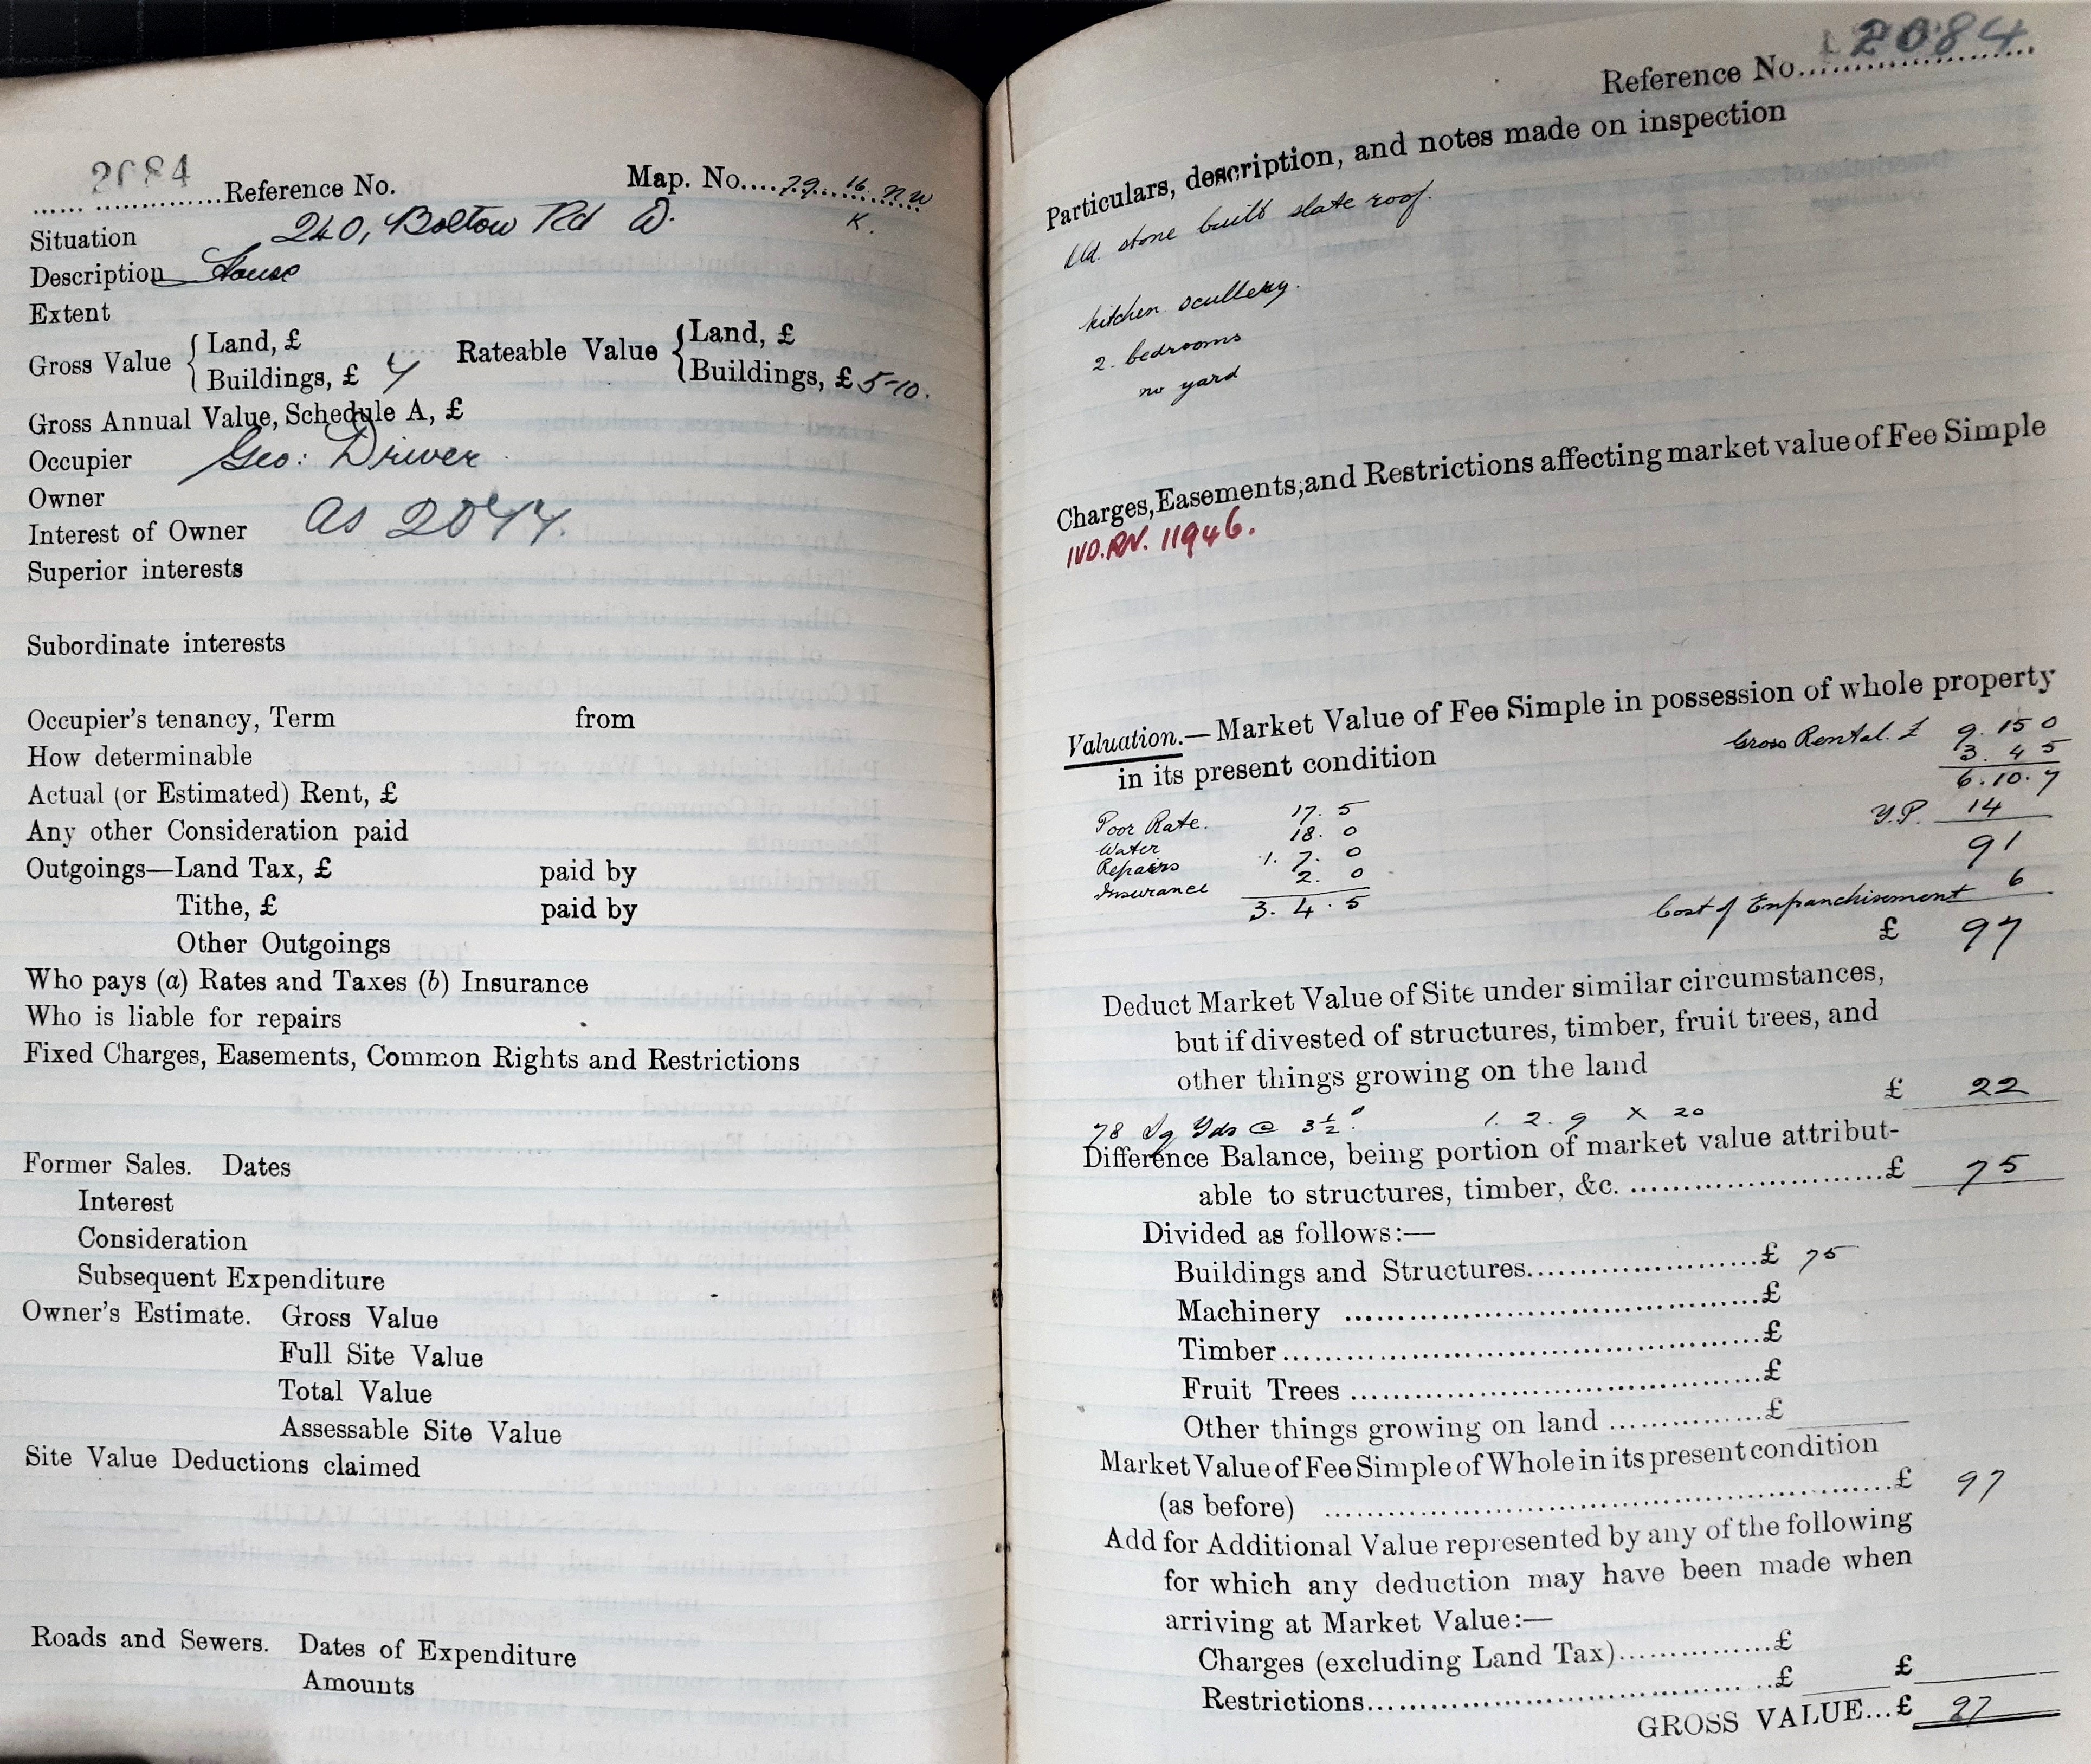 2084
Reference No. Map. No. 79. 16. NW
K.
Situation 240, Bolton Rd D.
Description House
Extent
Gross Value { Land, £ Rateable Value { Land, £
Buildings, £ 7 Buildings, £ 5-10.
Gross Annual Value, Schedule A, £
Occupier Geo: Driver
Owner
Interest of Owner as 2077.
Superior interests
Subordinate interests
Occupier's tenancy, Term from
How determinable
Actual (or Estimated) Rent, £
Any other Consideration paid
Outgoings—Land Tax, £ paid by
Tithe, £ paid by
Other Outgoings
Who pays (a) Rates and Taxes (b) Insurance
Who is liable for repairs
Fixed Charges, Easements, Common Rights and Restrictions
Former Sales. Dates
Interest
Consideration
Subsequent Expenditure
Owner's Estimate. Gross Value
Full Site Value
Total Value
Assessable Site Value
Site Value Deductions claimed
Roads and Sewers. Dates of Expenditure
Amounts
Reference No. 2084
Particulars, description, and notes made on inspection
Old. stone built slate roof.
kitchen. scullery.
2. bedrooms
no yard
Charges, Easements, and Restrictions affecting market value of Fee Simple
IVD. RV. 11946.
Valuation.—Market Value of Fee Simple in possession of whole property
in its present condition Gross Rental. £ 9. 15 0
3. 4 5
6. 10. 7
Poor Rate. 17. 5 Y.P. 14
Water 18. 0 91
Repairs 1. 7. 0
Insurance 2. 0 Cost of Enfranchisement 6
3. 4. 5 £ 97
Deduct Market Value of Site under similar circumstances,
but if divested of structures, timber, fruit trees, and
other things growing on the land £ 22
78 Sq Yds @ 3½d. 1. 2. 9 x 20
Difference Balance, being portion of market value attribut-
able to structures, timber, &c. £ 75
Divided as follows:—
Buildings and Structures £ 75
Machinery £
Timber £
Fruit Trees £
Other things growing on land £
Market Value of Fee Simple of Whole in its present condition
(as before) £ 97
Add for Additional Value represented by any of the following
for which any deduction may have been made when
arriving at Market Value:—
Charges (excluding Land Tax) £
Restrictions £ £
GROSS VALUE...£ 97